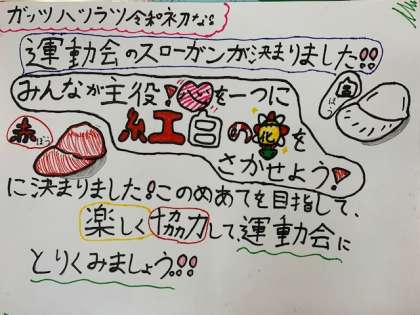 ガッツ ハツラツ 令和初な
運動会のスローガンが決まりました!!
みんなが主役!♡を一つに
紅白の花を
さかせよう!
白ぼう
赤ぼう
に決まりました!このめあてを目指して、
楽しく協力して、運動会に
とりくみましょう!!!